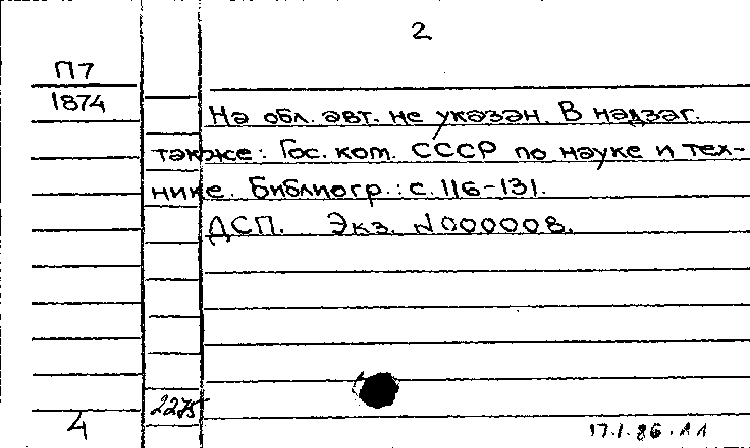 2
П7
1874
На обл. авт. не указан. В надзаг.
также: Гос. ком. СССР по науке и тех-
нике. Библиогр.: с. 116-131.
ДСП. Экз. N 000008.
2275
4
17.1.86.11